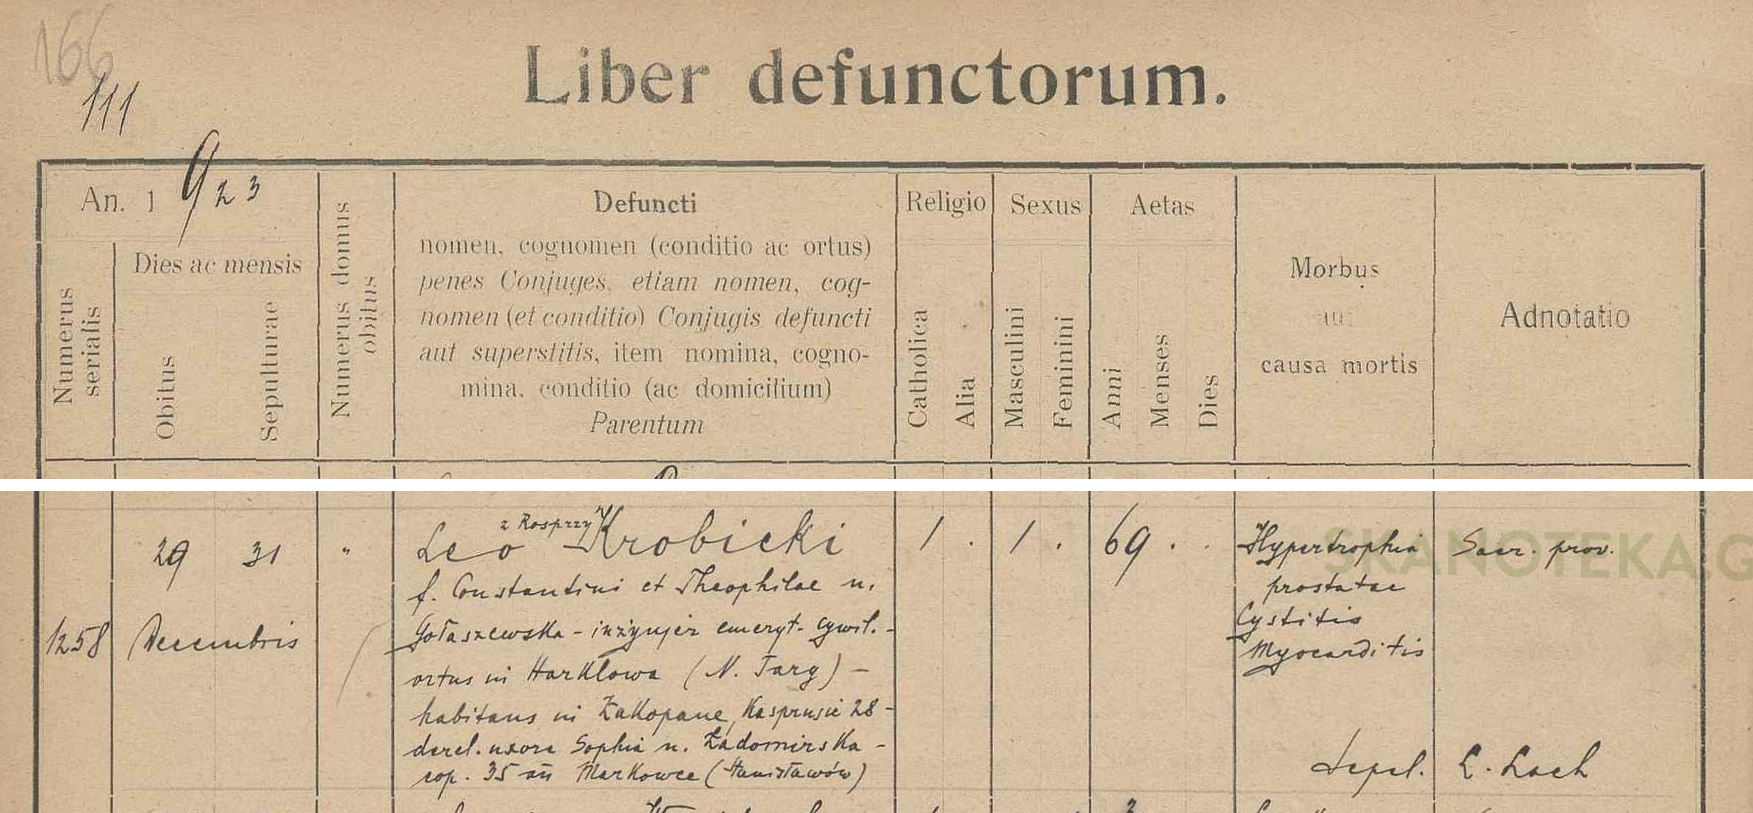 166
111
Liber defunctorum.
An. 1923
Dies ac mensis
Numerus serialis
Obitus
Sepulturae
Numerus domus obitus
Defuncti
nomen, cognomen (conditio ac ortus)
penes Conjuges, etiam nomen, cog-
nomen (et conditio) Conjugis defuncti
aut superstitis, item nomina, cogno-
mina, conditio (ac domicilium)
Parentum
Religio
Catholica
Alia
Sexus
Masculini
Feminini
Aetas
Anni
Menses
Dies
Morbus
aut
causa mortis
Adnotatio
1258
29 31 "
Decembris
z Rosprzy
Leo Krobicki
f. Constantini et Theophilae n.
Gołaszewska - inżynjer emeryt. cywil. -
ortus in Harklowa (N. Targ) -
habitans in Zakopane, Kasprusie 28 -
derel. uxore Sophia n. Zadomirska -
cop. 35 an Markowce (Stanisławów)
1 . 1 . 69 . .
Hypertrophia
prostatae
Cystitis
Myocarditis
Sacr. prov.
Sepel. L. Lach
SKANOTEKA.G